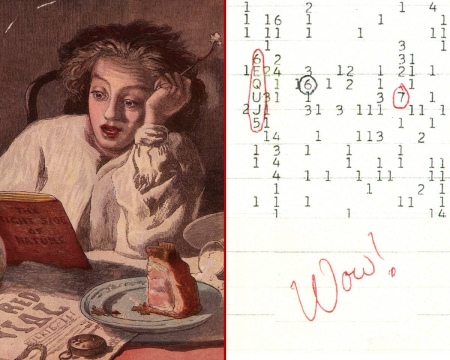 THE
NIGHT SIDE
OF
NATURE
1 2 1 4
1 16 1 1 1
1 11 1 1 11 1
1 3 1
6 2 31
1 E24 3 12 1 21 1
Q 16 1 2 1 11
U31 1 3 7 1
2 J 31 3 111 11 11
5 1 1 1
14 1 113 2
1 3 1 1 1 1
1 4 1 1 1 11
4 1 1 1 1 11
1 11 1
1 2 1
1 11 1 1 1 1
1 1 14
Wow!